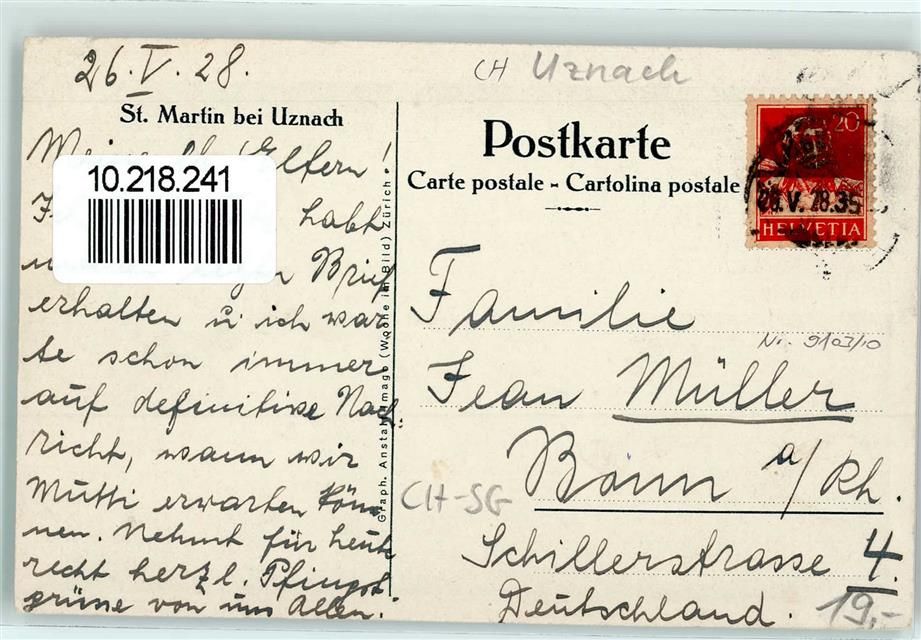 26.V.28.
St. Martin bei Uznach
Meine lb. Eltern!
10.218.241
habt
Brief
erhalten u ich war
te schon immer
auf definitive Nach
richt, wann wir
Mutti erwarten kön
nen. Nehmt für heute
recht herzl. Pfingst
grüsse von uns Allen.
Graph. Anstalt Imago (Woche im Bild) Zürich
CH Uznach
Postkarte
Carte postale - Cartolina postale
20
26.V.28.35
HELVETIA
Familie
Nr. 9103/10
Jean Müller
Bonn a/Rh.
CH-SG
Schillerstrasse 4.
Deutschland.
19,-